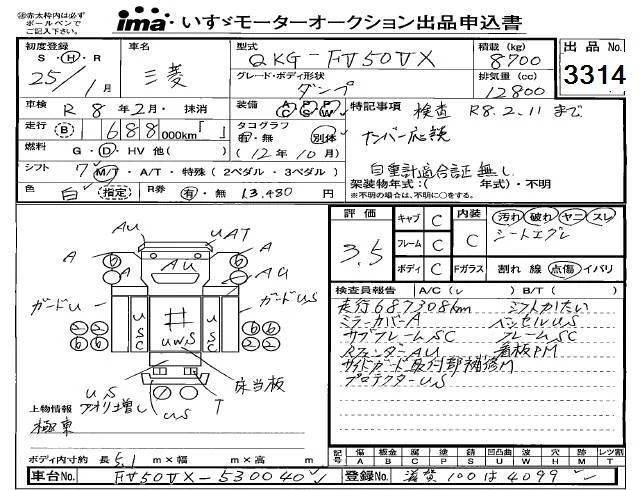 ㊟赤太枠内は必ず
ボールペンで
ご記入下さい。
ima いすゞモーターオークション出品申込書
初度登録 S・H・R 25/1月
車名 三菱
型式 QKG-FV50VX
グレード・ボディ形状 ダンプ
積載(kg) 8700
排気量(cc) 12800
出品No. 3314
車検 R 8年2月・抹消
装備 AC PS PW
特記事項 検査 R8.2.11まで
ナンバー応談
自重計適合証無し
走行 B 1 688 000km「 」
タコグラフ 有・無 別体
(12年10月)
燃料 G・D・HV 他( )
シフト 7 M/T・A/T・特殊(2ペダル・3ペダル)
架装物年式:( 年式)・不明
※不明の場合は、不明に○をする。
色 白 指定 R券 有・無 13,480円
評価 3.5
キャブ C
フレーム C
ボディ C
内装 C
Fガラス
汚れ 破れ ヤニ スレ
シートエグレ
割れ 線 点傷 イバリ
検査員報告 A/C(レ ) B/T( )
走行687308km シフトかたい
ミラーカバーA ベッセルUS
サブフレームSC フレームSC
RフェンダーAU 看板PM
サイドガード取付部補修M
プロテクターUS
AU
UAT
A
A
AU
AU
ガードU
ガードUS
U
SC
UWS
U
SC
US
アオリ増し
US
T
床当板
上物情報
極東
ボディ内寸約 長 5.1 m×幅 m×高 m
記号 傷 A 板金 B 腐 C 塗 P 錆 S 凹凸曲 U 波 W 穴 H 跡 M レツ割 T
車台No. FV50VX-530040
登録No. 滋賀100は4099